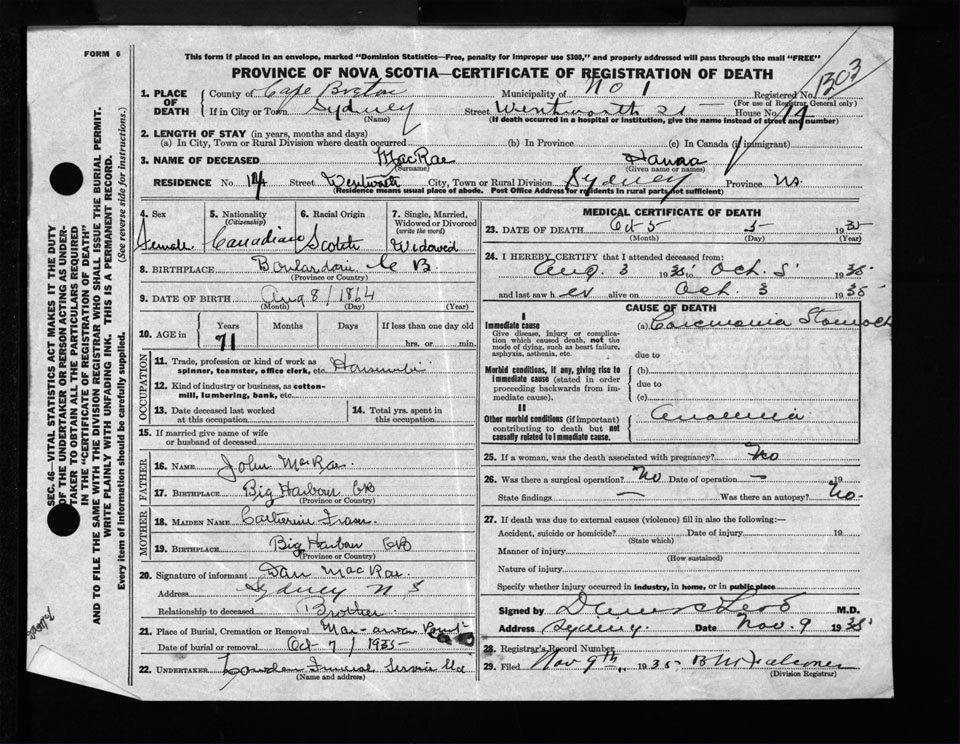 FORM 6
This form if placed in an envelope, marked "Dominion Statistics—Free, penalty for improper use $300," and properly addressed will pass through the mail "FREE"
PROVINCE OF NOVA SCOTIA—CERTIFICATE OF REGISTRATION OF DEATH
1303
1. PLACE OF DEATH
County of Cape Breton Municipality of No 1 Registered No.
(For use of Registrar General only)
If in City or Town Sydney Street Wentworth St House No. 14
(Name) (If death occurred in a hospital or institution, give the name instead of street and number)
2. LENGTH OF STAY (in years, months and days)
(a) In City, Town or Rural Division where death occurred (b) In Province (c) In Canada (if immigrant)
3. NAME OF DECEASED MacRae Hanna
(Surname) (Given name or names)
RESIDENCE No. 14 Street Wentworth City, Town or Rural Division Sydney Province NS
(Residence means usual place of abode. Post Office Address for residents in rural parts not sufficient)
4. Sex 5. Nationality 6. Racial Origin 7. Single, Married,
(Citizenship) Widowed or Divorced
(write the word)
Female Canadian Scotch Widowed
8. BIRTHPLACE Boulardarie C B.
(Province or Country)
9. DATE OF BIRTH Aug 8/1864
(Month) (Day) (Year)
10. AGE in Years Months Days If less than one day old
71 hrs. or min.
OCCUPATION
11. Trade, profession or kind of work as
spinner, teamster, office clerk, etc.
12. Kind of industry or business, as cotton-
mill, lumbering, bank, etc.
13. Date deceased last worked
at this occupation
14. Total yrs. spent in
this occupation
15. If married give name of wife
or husband of deceased
FATHER
16. NAME John MacRae
17. BIRTHPLACE Big Harbour CB
(Province or Country)
MOTHER
18. MAIDEN NAME Catherine
19. BIRTHPLACE Big Harbour CB
(Province or Country)
20. Signature of informant Dan MacRae
Address Sydney N S
Relationship to deceased Brother
21. Place of Burial, Cremation or Removal Point
Date of burial or removal Oct 7/1935
22. UNDERTAKER Funeral Service Ltd
(Name and address)
MEDICAL CERTIFICATE OF DEATH
23. DATE OF DEATH Oct 5 5 1935
(Month) (Day) (Year)
24. I HEREBY CERTIFY that I attended deceased from:
Aug. 3 1935 to Oct. 5 1935
and last saw her alive on Oct. 3 1935
CAUSE OF DEATH
I
Immediate cause
Give disease, injury or complica-
tion which caused death, not the
mode of dying, such as heart failure,
asphyxia, asthenia, etc.
(a) Stomach
due to
Morbid conditions, if any, giving rise to
immediate cause (stated in order
proceeding backwards from im-
mediate cause).
(b)
due to
(c)
II
Other morbid conditions (if important)
contributing to death but not
causally related to immediate cause.
Anaemia
25. If a woman, was the death associated with pregnancy? No
26. Was there a surgical operation? No Date of operation — 19
State findings — Was there an autopsy? No-
27. If death was due to external causes (violence) fill in also the following:—
Accident, suicide or homicide? Date of injury 19
(State which)
Manner of injury
(How sustained)
Nature of injury
Specify whether injury occurred in industry, in home, or in public place
Signed by M.D.
Address Sydney. Date Nov. 9 1935
28. Registrar's Record Number
29. Filed Nov 9th 1935
(Division Registrar)
SEC. 46—VITAL STATISTICS ACT MAKES IT THE DUTY
OF THE UNDERTAKER OR PERSON ACTING AS UNDER-
TAKER TO OBTAIN ALL THE PARTICULARS REQUIRED
IN THE "CERTIFICATE OF REGISTRATION OF DEATH"
AND TO FILE THE SAME WITH THE DIVISION REGISTRAR WHO SHALL ISSUE THE BURIAL PERMIT.
WRITE PLAINLY WITH UNFADING INK. THIS IS A PERMANENT RECORD.
Every item of information should be carefully supplied. (See reverse side for instructions.)